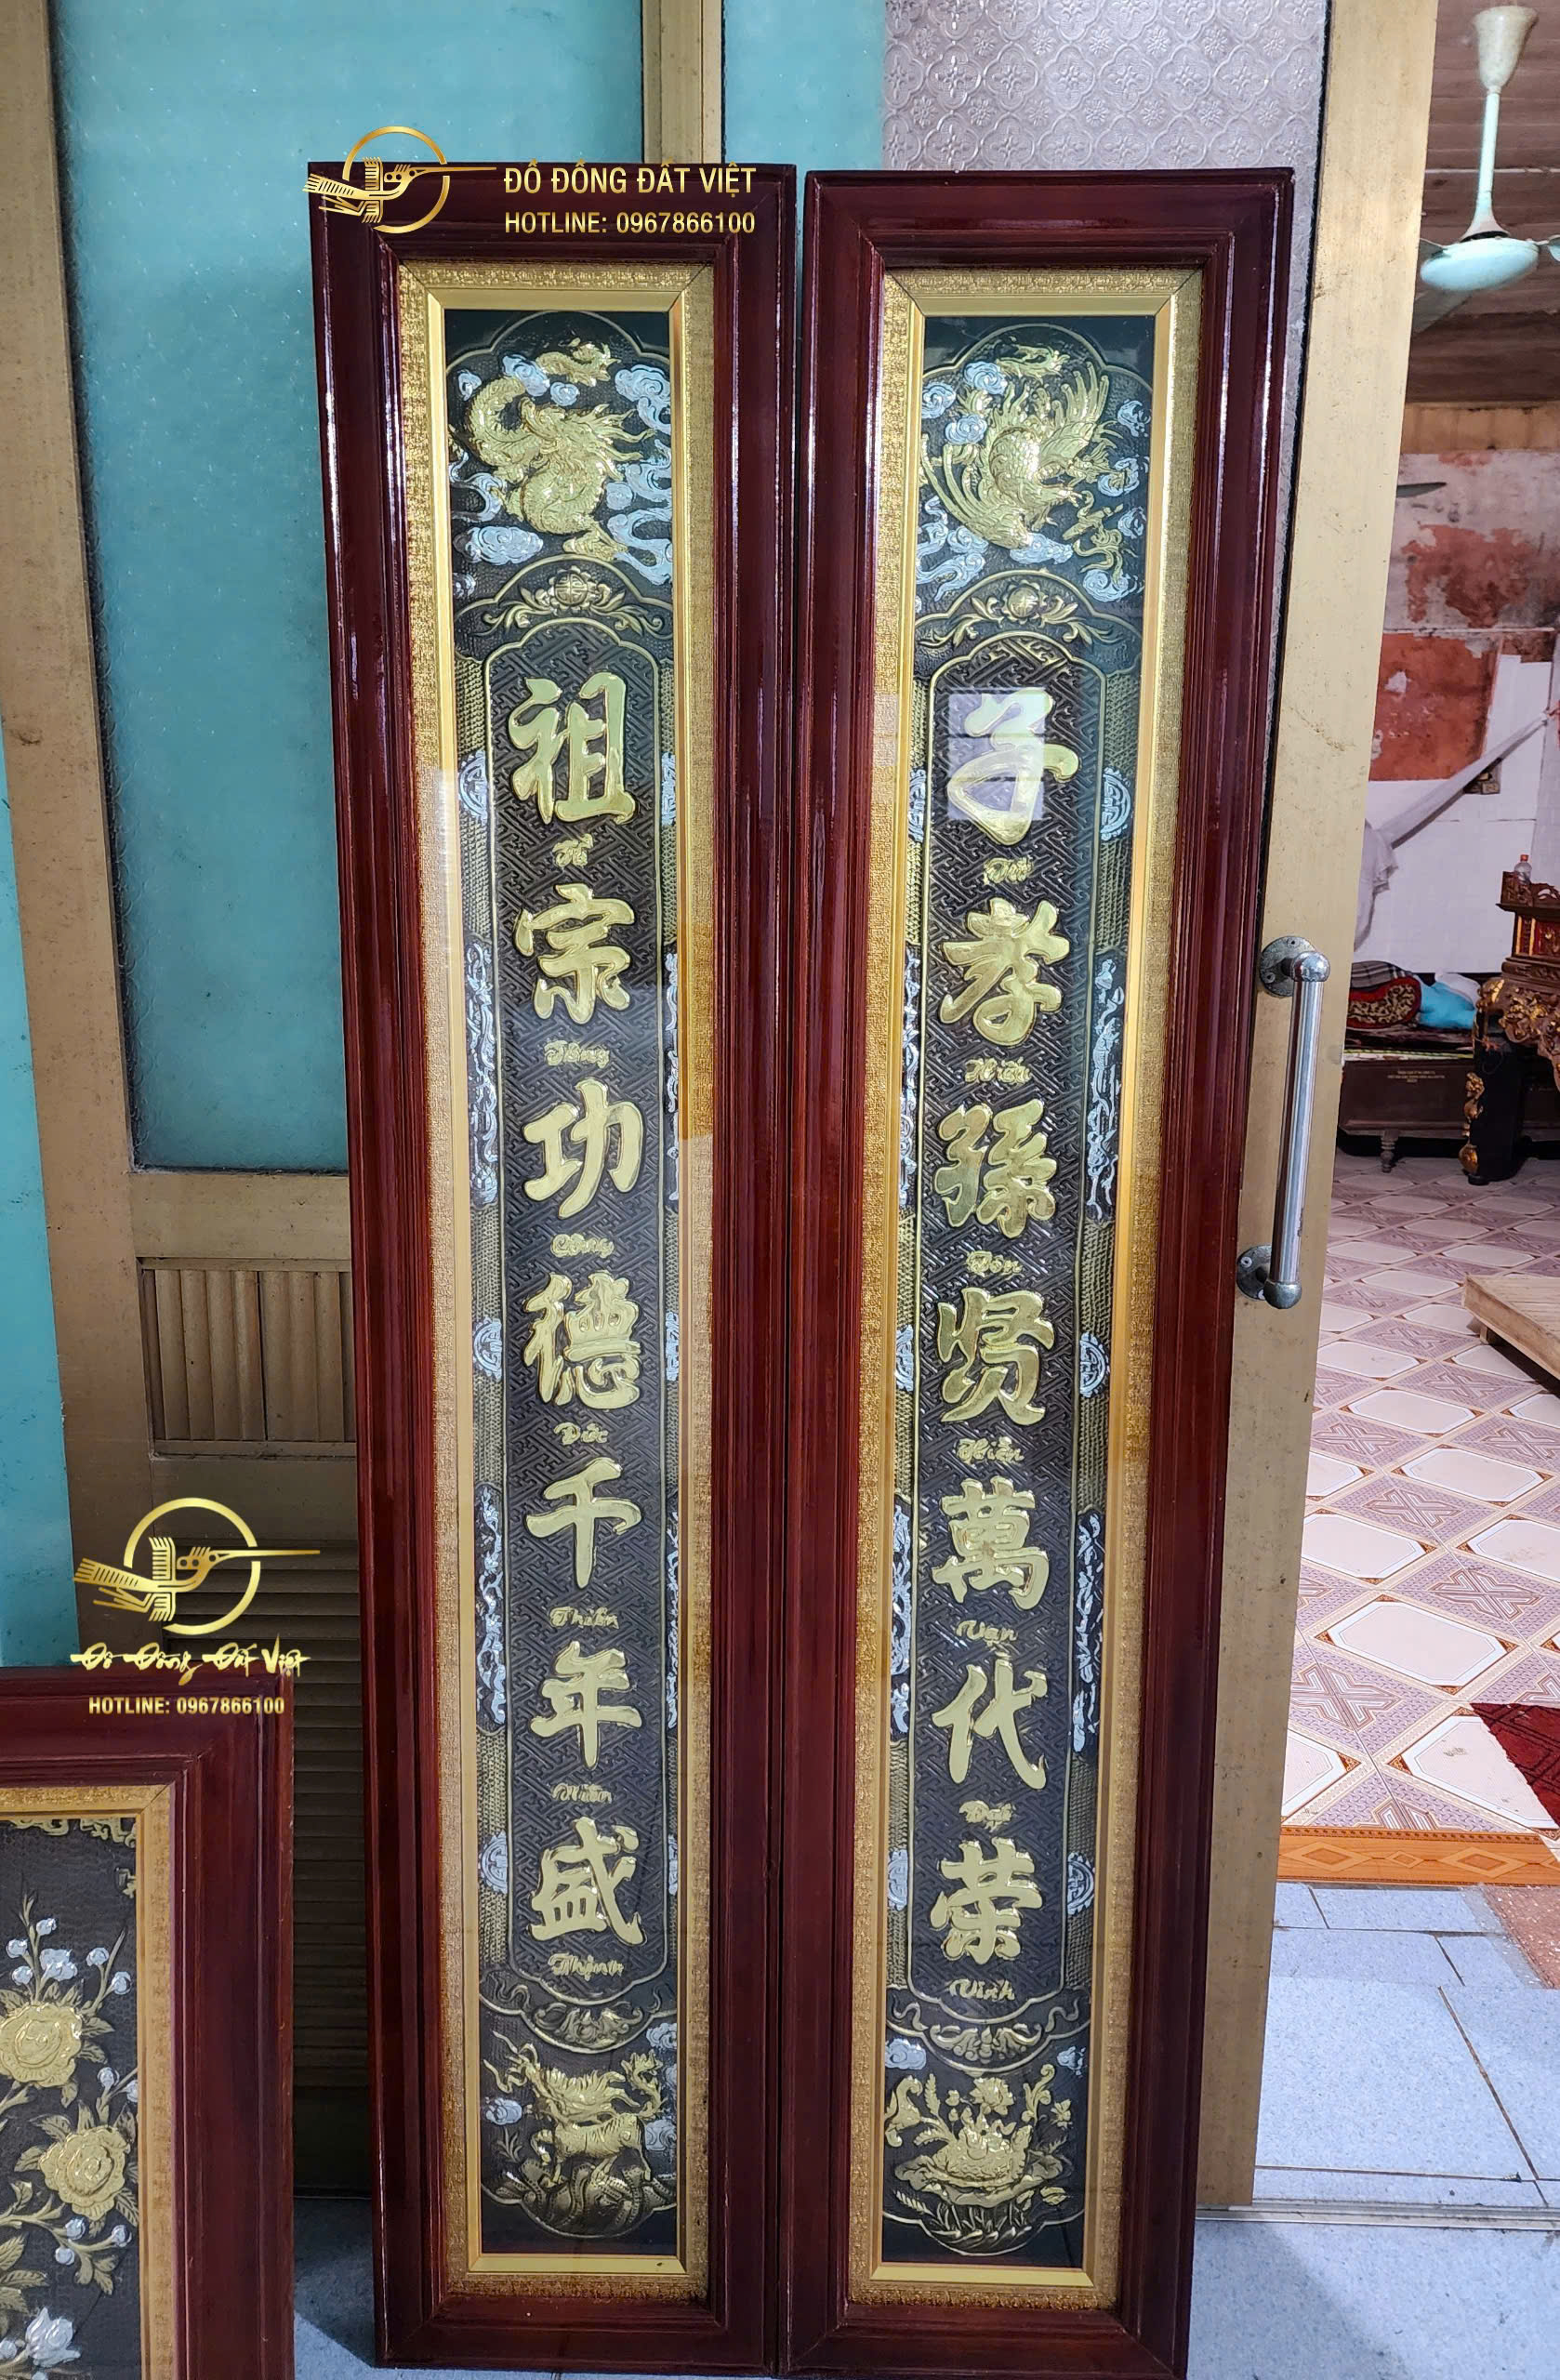 ĐỒ ĐỒNG ĐẤT VIỆT
HOTLINE: 0967866100
祖
Tổ
宗
Tông
功
Công
德
Đức
千
Thiên
年
Niên
盛
Thịnh
子
孝
Hiếu
孫
Tôn
贤
Hiền
萬
Vạn
代
Đại
荣
Vinh
Đồ Đồng Đất Việt
HOTLINE: 0967866100